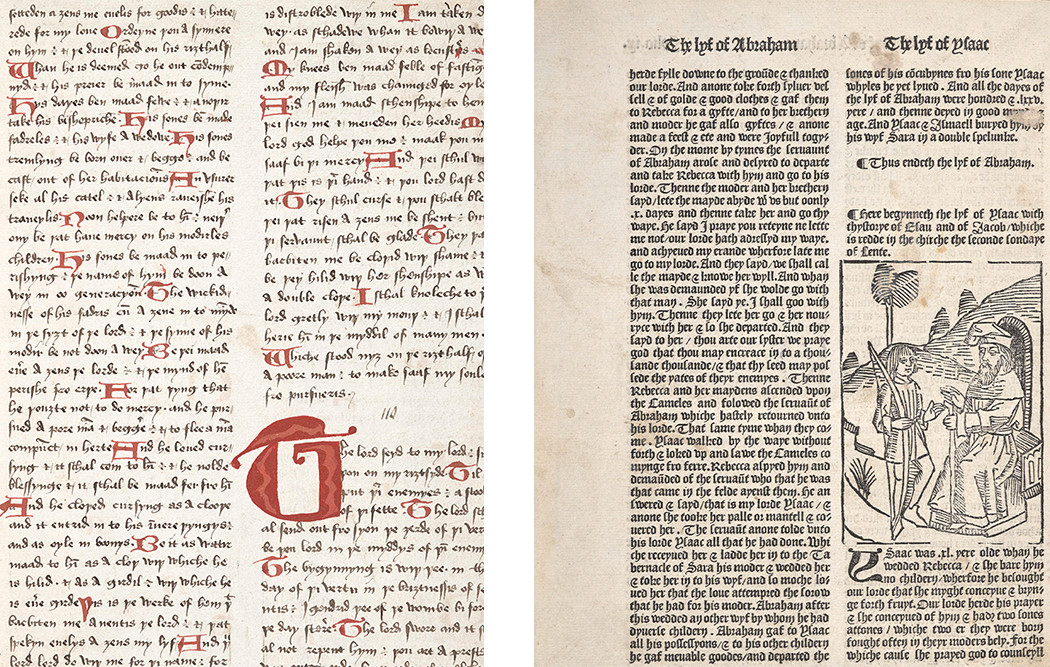 seveden a zens me euelis for goodis : & hate
rede for my love Ordeyne þou a synnere
on hym : & þe deuel stood on his riȝthalf
Whan he is deemed go he out condemp
nyd : & his preier be maad in to synne
His dayes ben maad fewe : & anoþir
take his bishopriche His sones be maad
fadreles : & his wyfe a wedowe His sones
tremblyng be born over & beggen : and be
cast out of her habitaciouns An vsurer
seke al his catel : & alyens raueishe his
traueylis Noon helpere be to him : neþer
ony be þat have mercy on his modirles
children His sones be maad in to pe
rishyng : þe name of hym be doon a
wey in oo generacyon The wickid
nesse of his fadris
in þe syzt of þe lord : & þe synne of his
modir be not doon a wey Be þei maad
euere a zens þe lorde : & þe mynd of hem
perishe fro erþe For þat þyng that
he þouzte not to do mercy and he pur
sued a pore man & begger : & to slee a man
compunct in herte And he loved cur
syng & it shal com to him : & he nolde
blessynge & it shal be maad fer fro him
And he cloþed cursyng as a clooþe
and it entrid in to his ynnere þyngys
and as oyle in boonys Be it as watir
maad to him as a cloþ wiþ whiche he
is hilid & as a girdil wiþ whiche he
is euer gird Þis is þe werke of hem þat
bacbiten me anentis þe lord : & þat
spekyn euelys a zens my lyf And þou
lord lord do wiþ me for þi name : for
is distroblede wiþ in me I am taken a
wey as shadewe whan it bowiþ a wey
and I am shakyn a wey as locustis
My knees ben maad feble of fasting
and my fleish was chaunged for oyle
And I am maad shenshipe to hem
þei sien me & meueden her heedis
lord god helpe þou me : maak þou me
saaf bi þi mercy And þei shul wite
þat þis is þi hand : & þou lord hast do
it They shul curse & þou shalt bles
þei þat risen a zens me be shent : but
þi servaunt shal be glade They þat
bacbiten me be cloþid wiþ shame : &
be þey hilid wiþ her shenshipe as wiþ
a double cloþe I shal knoleche to þe
lord gretly wiþ my mouþ : & I shal
herie him in þe myddil of many men
Whiche stood nyz on þe rizthalf of
a poore man : to make saaf my soule
fro pursueris
110
The lord seyd to my lord : sit
þou on my riztside Til
I put þin enemyes : a stool
of þi feete The lord sh
al send out fro syon þe zerde of þi vertu
be þou lord in þe myddys of þin enemyes
The bygynnyng is wiþ þee in the
day of þi vertu in þe briztnesse of sey
ntis : I gendrid þee of þe wombe bi for
þe day sterre The lord swore and it sh
al not repent hym : þou art a preest
The lyf of Abraham
herde fylle downe to the grou̅de & thanked
our lorde. And anone toke forth syluer ves
sell & of golde & good clothes & gaf them
to Rebecca for a gyfte/ and to her brethern
and moder he gaf also gyftes/ & anone
made a feest & ete and were Joyfull togy
der. On the morne by tymes the seruaunt
of Abraham arose and desyred to departe
and take Rebecca with hym and go to his
lorde. Thenne the moder and her brethern
sayd/ lete the mayde abyde w̄ vs but oonly
.x. dayes and thenne take her and go thy
waye. He sayd I praye you reteyne ne lette
me not/ our lorde hath adressyd my waye.
and achyeued my erande wherfore late me
go to my lorde. And they sayd/ we shall cal
le the mayde & knowe her wyll. And whan
she was demaunded yf she wolde go with
that may . She sayd ye. I shall goo with
hym. Thenne they lete her go & her nou-
ryce with her & so she departed. And they
sayd to her / thou arte our syster we praye
god that thou may encreace in to a thou-
sande thousande/ & that thy seed may pos
sede the yates of theyr enemyes . Thenne
Rebecca and her maydens ascended vpon
the Cameles and folowed the seruaūt of
Abraham whiche hastely retourned vnto
his lorde. That same tyme whan they co-
me . Ysaac walked by the waye without
forth & loked vp and sawe the Cameles co
mynge fro ferre. Rebecca aspyed hym and
demaūded of the seruaūt who that he was
that came in the felde ayenst them. He an
swered & sayd/ that is my lorde Ysaac / &
anone she tooke her palle or mantell & co-
uered her . The seruaūt anone tolde vnto
his lorde Ysaac all that he had done. Whi
che receyued her & ladde her in to the Ta
bernacle of Sara his moder & wedded her
& toke her in to his wyf/ and so moche lo-
ued her that the loue attempted the sorow
that he had for his moder. Abraham after
this wedded an other wyf by whom he had
dyuerse childern. Abraham gaf to Ysaac
all his possessyons/ & to his other childern
he gaf meuable goodes/ and departed the
The lyf of Ysaac
sones of his concubynes fro his sone Ysaac
whyles he yet lyued . And all the dayes of
the lyf of Abraham were hondred & .lxxv.
yere / and thenne deyed in good
age. And Ysaac & Ismaell buryed hym by
his wyf Sara in a double spelunke.
¶ Thus endeth the lyf of Abraham.
¶ Here begynneth the lyf of Ysaac with
thystorye of Esau and of Jacob/ whiche
is redde in the chirche the seconde sondaye
of Lente.
YSaac was .xl. yere olde whan he
wedded Rebecca / & she bare hym
no childern/ wherfore he besought
our lorde that she myght conceyue & bryn-
ge forth fruyt. Our lorde herde his prayer
& she conceyued of hym & had two sones
attones / whiche two er they were born
fought often in theyr moders bely. For the
whiche cause she prayed god to counseyll